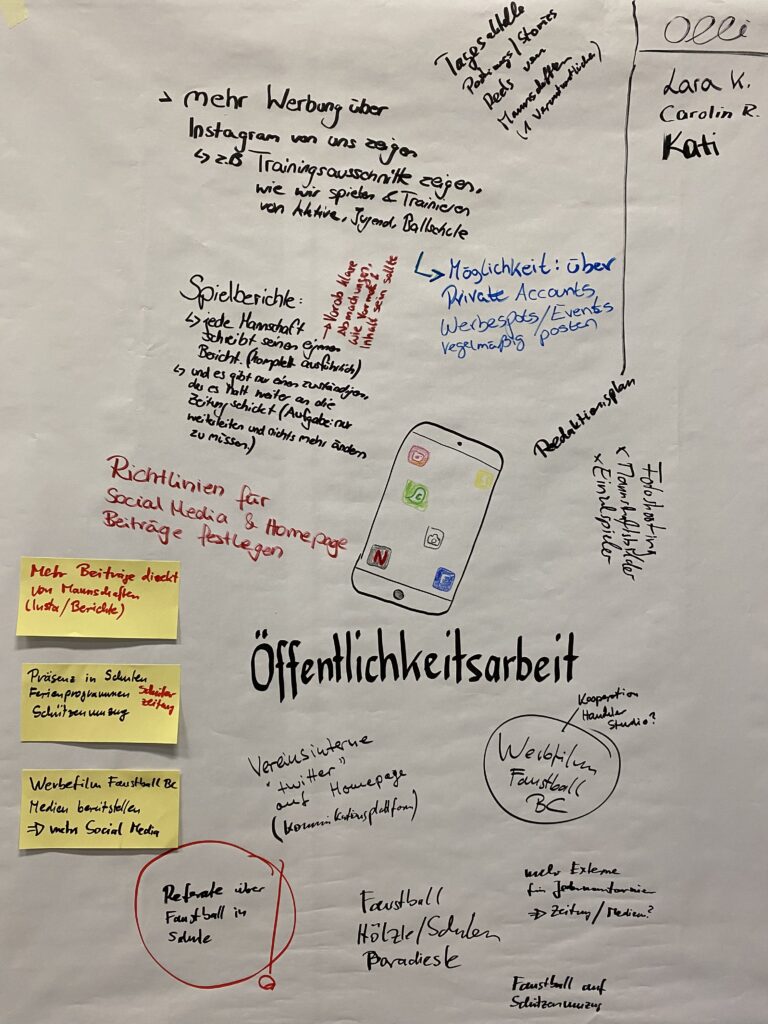 Tagesaktuelle
Postings/Stories
Reels von
Mannschaften
(1 Verantwortliche)
Olli
Lara K.
Carolin R.
Kati
→ mehr Werbung über
Instagram von uns zeigen
↳ z.B Trainingsausschnitte zeigen,
wie wir spielen & Trainieren
von Aktive, Jugend, Ballschule
↳ Möglichkeit: über
Private Accounts
Werbespots/Events
regelmäßig posten
Spielberichte:
↳ jede Mannschaft
schreibt seinen eigenen
Bericht. (komplett ausführlich)
↳ und es gibt nur einen zuständigen,
der es Matt weiter an die
Zeitung schickt (Aufgabe: nur
weiterleiten und nichts mehr ändern
zu müssen)
→ Vorab klare
Abmachungen,
wie Format &
Inhalt sein sollte
Redaktionsplan
Fotoshooting
x Mannschaftsbilder
x Einzelspieler
Richtlinien für
Social Media & Homepage
Beiträge festlegen
N
F
Mehr Beiträge direkt
von Mannschaften
(Insta/Berichte)
Präsenz in Schulen
Ferienprogrammen Schüler
zeitung
Schützenumzug
Werbefilm Faustball BC
Medien bereitstellen
⇒ mehr Social Media
Öffentlichkeitsarbeit
Vereinsinterne
"twitter"
auf Homepage
(Kommunikationsplattform)
Kooperation
Studio?
Werbfilm
Faustball
BC
Referate über
Faustball in
Schule
Faustball
Hölzle/Schulen
Paradiesle
mehr Externe
für
⇒ Zeitung/Medien?
Faustball auf
Schützenumzug